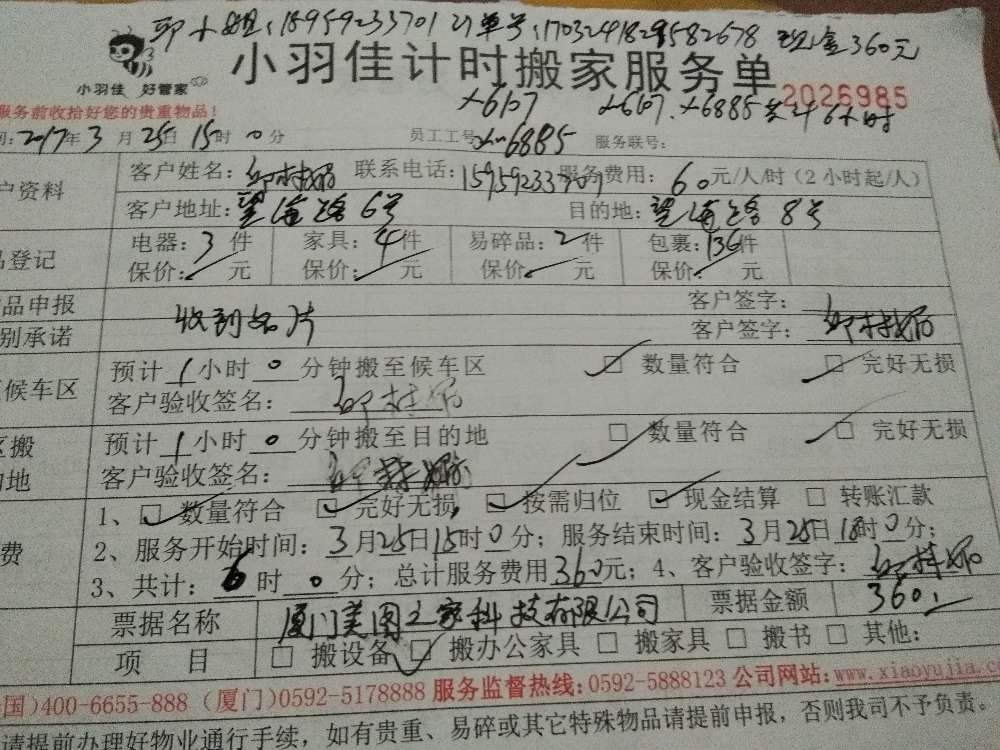 小姐:18959233701 订单号:17032418291582678 现金360元
小羽佳 好管家
小羽佳计时搬家服务单
2026985
x6107 x6107. x6885 共计6小时
服务前收拾好您的贵重物品!
间:2017年3月25日15时0分 员工工号 x6885 服务联号:
户资料 客户姓名: 联系电话:15959233701 服务费用:60元/人/时(2小时起/人)
客户地址:望海路6号 目的地:望海路8号
品登记 电器:3件 家具:4件 易碎品:2件 包裹:136件
保价: 元 保价: 元 保价: 元 保价: 元
品申报 客户签字:
别承诺 收到名片 客户签字:
候车区 预计1小时0分钟搬至候车区 数量符合 完好无损
客户验收签名:
区搬 预计1小时0分钟搬至目的地 数量符合 完好无损
的地 客户验收签名:
1、数量符合 完好无损 按需归位 现金结算 转账汇款
2、服务开始时间:3月25日15时0分;服务结束时间:3月25日18时0分;
费 3、共计:6时0分;总计服务费用360元;4、客户验收签字:
票据名称 厦门美图之家科技有限公司 票据金额 360.
项目 搬设备 搬办公家具 搬家具 搬书 其他:
国)400-6655-888 (厦门)0592-5178888 服务监督热线:0592-5888123 公司网站:www.xiaoyujia.c
请提前办理好物业通行手续,如有贵重、易碎或其它特殊物品请提前申报,否则我司不予负责。